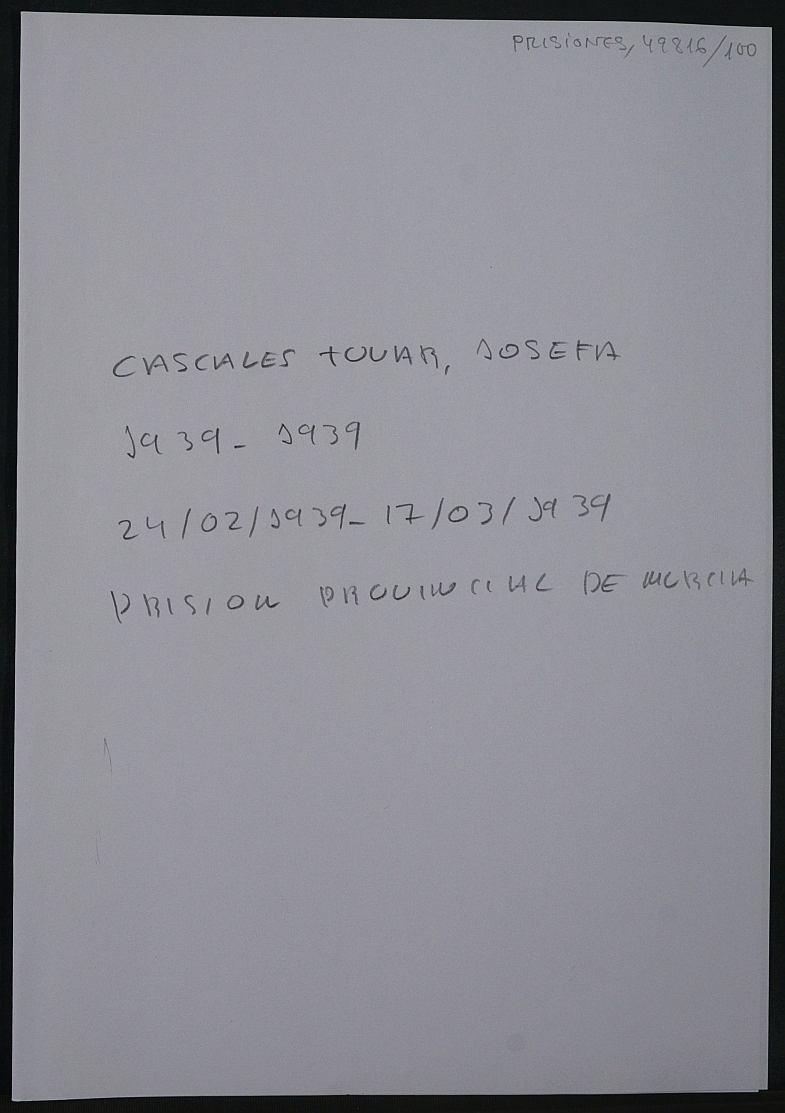 PRISIONES, 49816/100
CASCALES TOVAR, JOSEFA
1939- 1939
24/02/1939- 17/03/1939
PRISION PROVINCIAL DE MURCIA